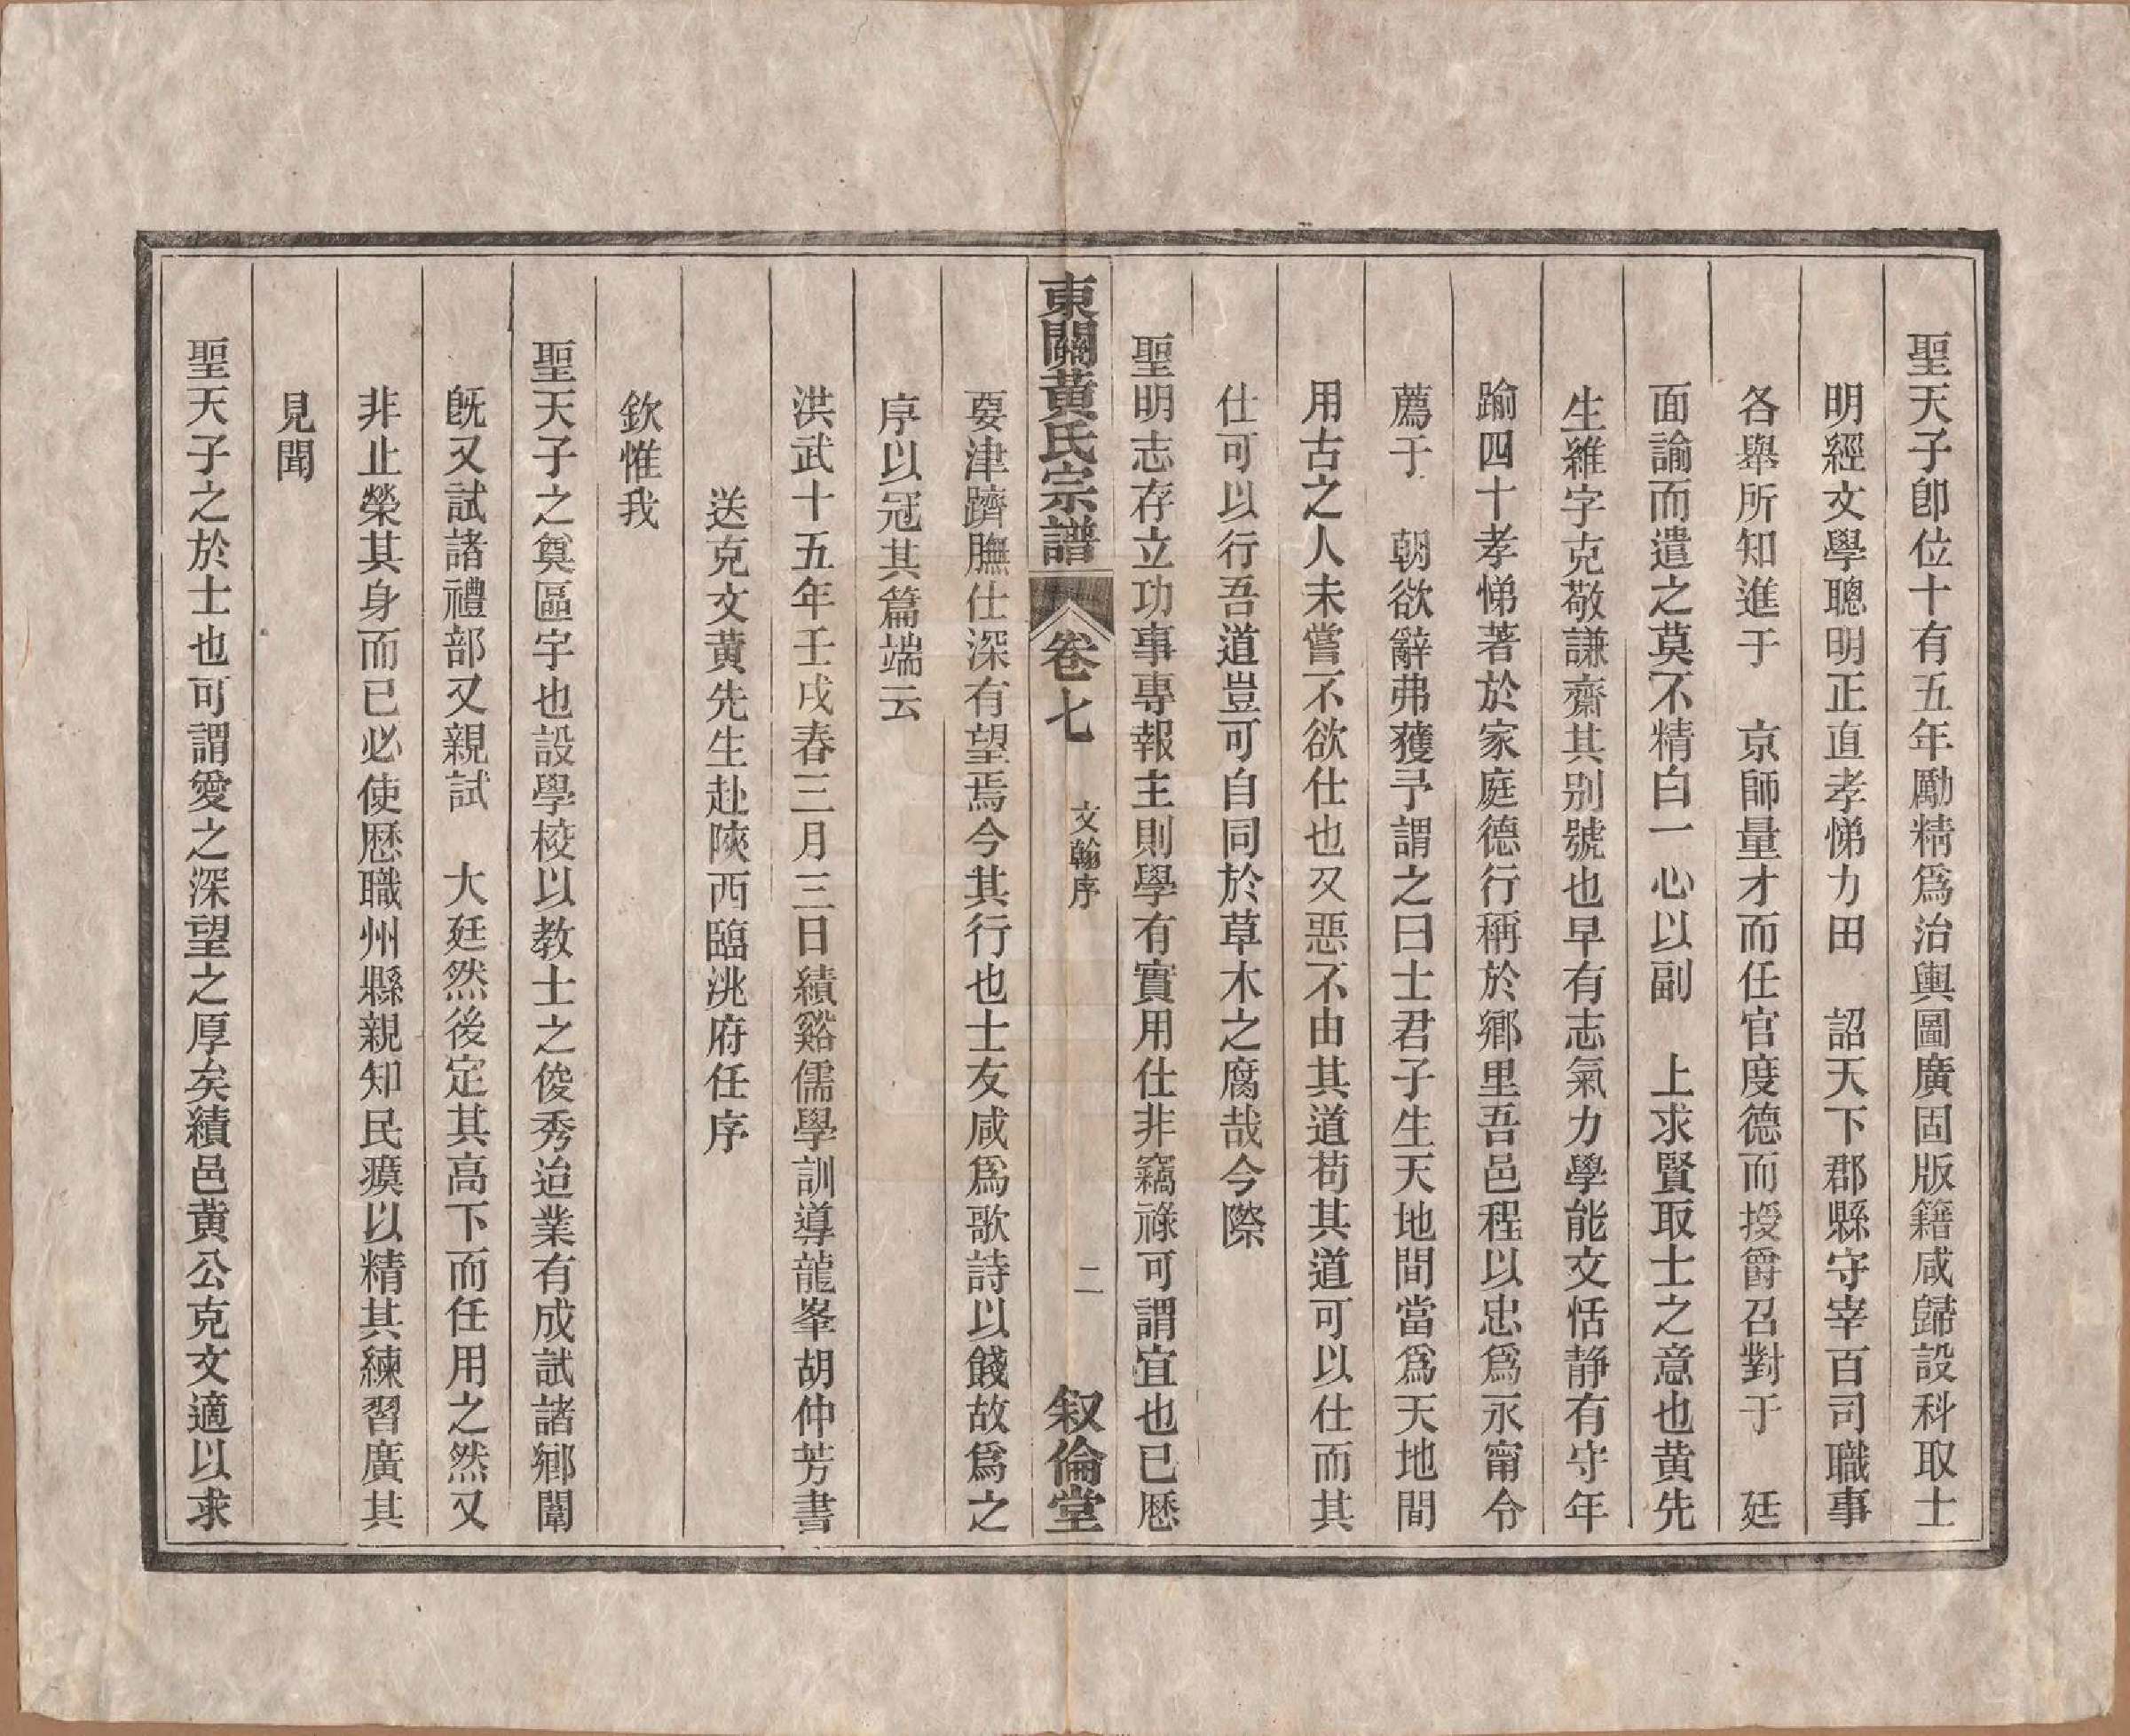 聖天子卽位十有五年勵精爲治輿圖廣固版籍咸歸設科取士
明經文學聰明正直孝悌力田　詔天下郡縣守宰百司職事
各舉所知進于　京師量才而任官度德而授爵召對于　廷
面諭而遣之莫不精白一心以副　上求賢取士之意也黄先
生維字克敬謙齋其别號也早有志氣力學能文恬静有守年
踰四十孝悌著於家庭德行稱於鄉里吾邑程以忠爲永甯令
薦于　朝欲辭弗獲予謂之曰士君子生天地間當爲天地間
用古之人未嘗不欲仕也又惡不由其道苟其道可以仕而其
仕可以行吾道豈可自同於草木之腐哉今際
聖明志存立功事專報主則學有實用仕非竊祿可謂宜也已歷
東關黄氏宗譜　卷七　文翰序　二　叙倫堂
要津躋膴仕深有望焉今其行也士友咸爲歌詩以餞故爲之
序以冠其篇端云
洪武十五年壬戌春三月三日績谿儒學訓導龍峯胡仲芳書
送克文黄先生赴陝西臨洮府任序
欽惟我
聖天子之奠區宇也設學校以教士之俊秀迨業有成試諸鄉闈
旣又試諸禮部又親試　大廷然後定其高下而任用之然又
非止榮其身而已必使歷職州縣親知民瘼以精其練習廣其
見聞
聖天子之於士也可謂愛之深望之厚矣績邑黄公克文適以求